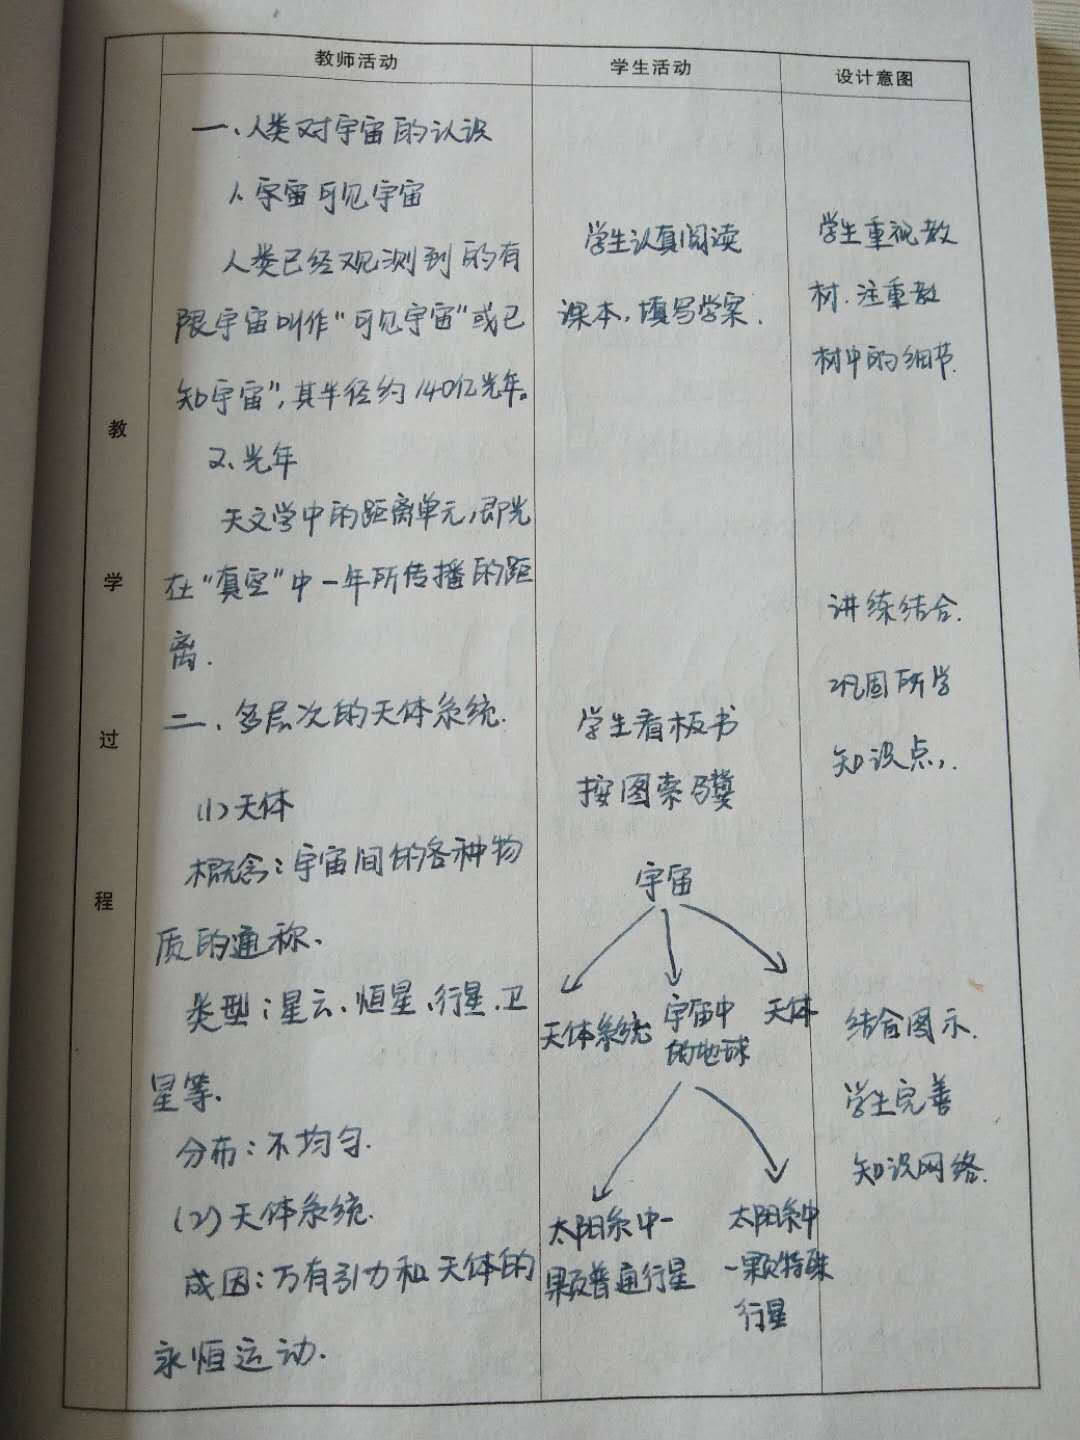 教师活动
学生活动
设计意图
教
学
过
程
一、人类对宇宙的认识
1、宇宙可见宇宙
人类已经观测到的有
限宇宙叫作“可见宇宙”或已
知宇宙”,其半径约140亿光年。
2、光年
天文学中的距离单元,即光
在“真空”中一年所传播的距
离.
二、多层次的天体系统.
(1)天体
概念:宇宙间的各种物
质的通称、
类型:星云、恒星、行星、卫
星等.
分布:不均匀.
(2)天体系统.
成因:万有引力和天体的
永恒运动.
学生认真阅读
课本,填写学案.
学生看板书
按图索骥
宇宙
天体系统
宇宙中
的地球
天体
太阳系中一
颗普通行星
太阳系中
一颗特殊
行星
学生重视教
材.注重教
材中的细节.
讲练结合.
巩固所学
知识点,.
结合图示.
学生完善
知识网络.